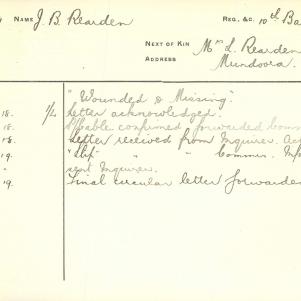 NAME J. B. Rearden REG. &C. 10th Ba
NEXT OF KIN Mrs L. Rearden
ADDRESS Mundoora.
"Wounded & Missing".
18. 1/2 Letter acknowledged.
18. confirmed forwarded
18. Letter received from Inquirer.
19. " " Commr.
" sent Inquirer.
19 Final circular letter forwarded